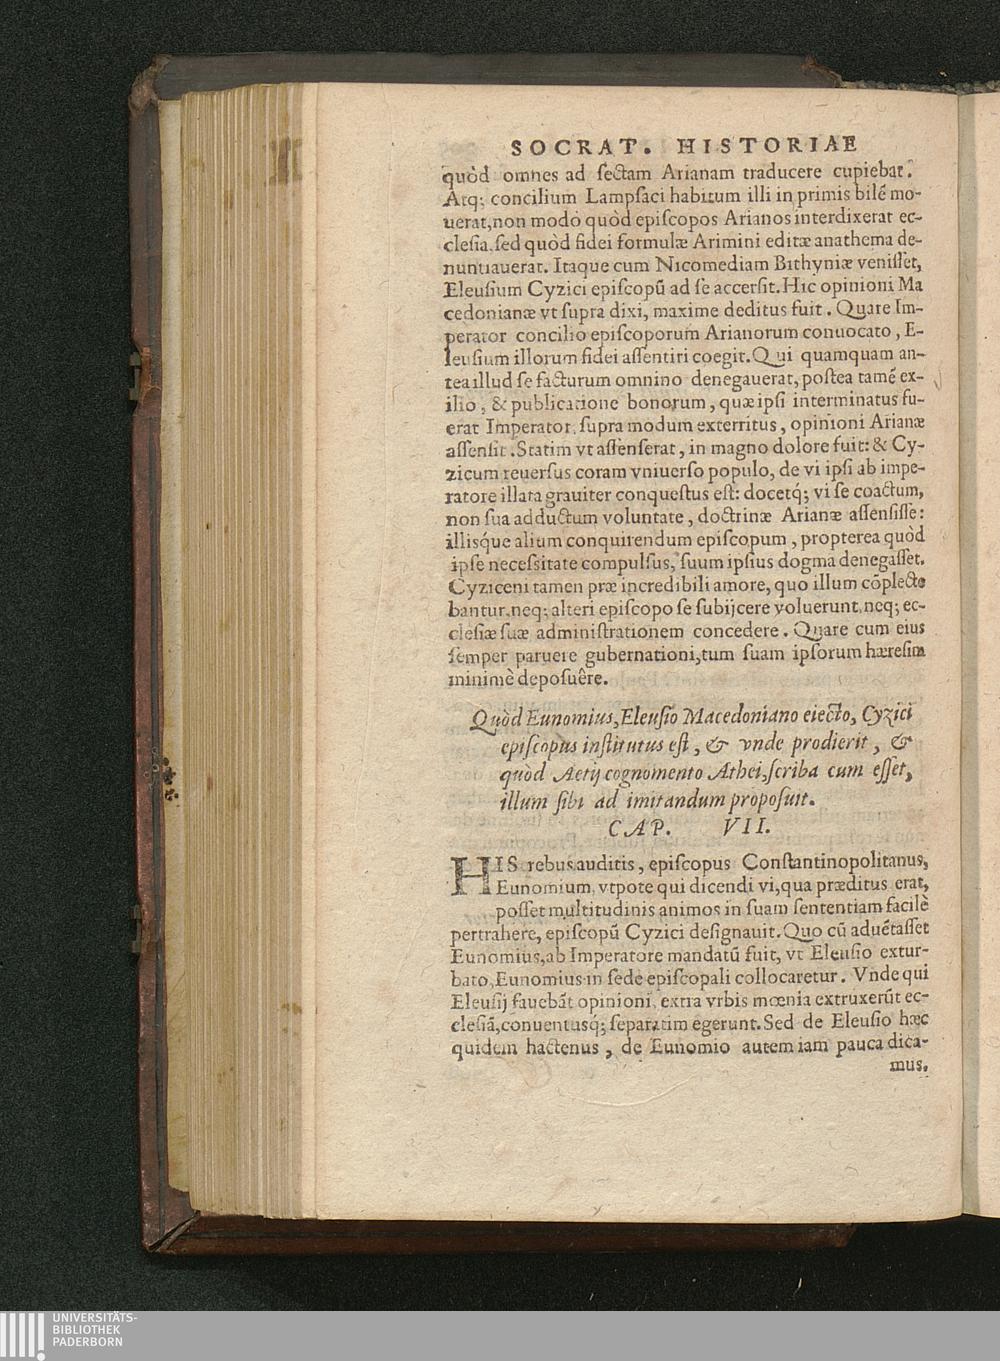 SOCRAT. HISTORIAE
quòd omnes ad ſectam Arianam traducere cupiebat.
Atq; concilium Lampſaci habitum illi in primis bilẽ mo-
uerat, non modò quòd epiſcopos Arianos interdixerat ec-
cleſia, ſed quòd fidei formulæ Arimini editæ anathema de-
nuntiauerat. Itaque cum Nicomediam Bithyniæ veniſſet,
Eleuſium Cyzici epiſcopũ ad ſe accerſit. Hic opinioni Ma
cedonianæ vt ſupra dixi, maxime deditus fuit. Quare Im-
perator concilio epiſcoporum Arianorum conuocato, E-
leuſium illorum fidei aſſentiri coegit. Qui quamquam an-
tea illud ſe facturum omnino denegauerat, poſtea tamẽ ex-
ilio, & publicatione bonorum, quæ ipſi interminatus fu-
erat Imperator, ſupra modum exterritus, opinioni Arianæ
aſſenſit. Statim vt aſſenſerat, in magno dolore fuit: & Cy-
zicum reuerſus coram vniuerſo populo, de vi ipſi ab impe-
ratore illata grauiter conqueſtus eſt: docetq́; vi ſe coactum,
non ſua adductum voluntate, doctrinæ Arianæ aſſenſiſſe:
illisq́ue alium conquirendum epiſcopum, propterea quòd
ipſe neceſsitate compulſus, ſuum ipſius dogma denegaſſet.
Cyziceni tamen præ incredibili amore, quo illum cõplecte
bantur, neq; alteri epiſcopo ſe ſubijcere voluerunt, neq; ec-
cleſiæ ſuæ adminiſtrationem concedere. Quare cum eius
ſemper paruere gubernationi, tum ſuam ipſorum hæreſim
minimè depoſuêre.
Quòd Eunomius, Eleuſio Macedoniano eiecto, Cyzici
epiſcopus inſtitutus eſt, & vnde prodierit, &
quòd Aetij cognomento Athei, ſcriba cum eſſet,
illum ſibi ad imitandum propoſuit.
CAP. VII.
HIS rebus auditis, epiſcopus Conſtantinopolitanus,
Eunomium, vtpote qui dicendi vi, qua præditus erat,
poſſet multitudinis animos in ſuam ſententiam facilè
pertrahere, epiſcopũ Cyzici deſignauit. Quo cũ aduẽtaſſet
Eunomius, ab Imperatore mandatũ fuit, vt Eleuſio extur-
bato, Eunomius in ſede epiſcopali collocaretur. Vnde qui
Eleuſij fauebãt opinioni, extra vrbis mœnia extruxerũt ec-
cleſiã, conuentusq́; ſeparatim egerunt. Sed de Eleuſio hæc
quidem hactenus, de Eunomio autem iam pauca dica-
mus.
UNIVERSITÄTS-
BIBLIOTHEK
PADERBORN